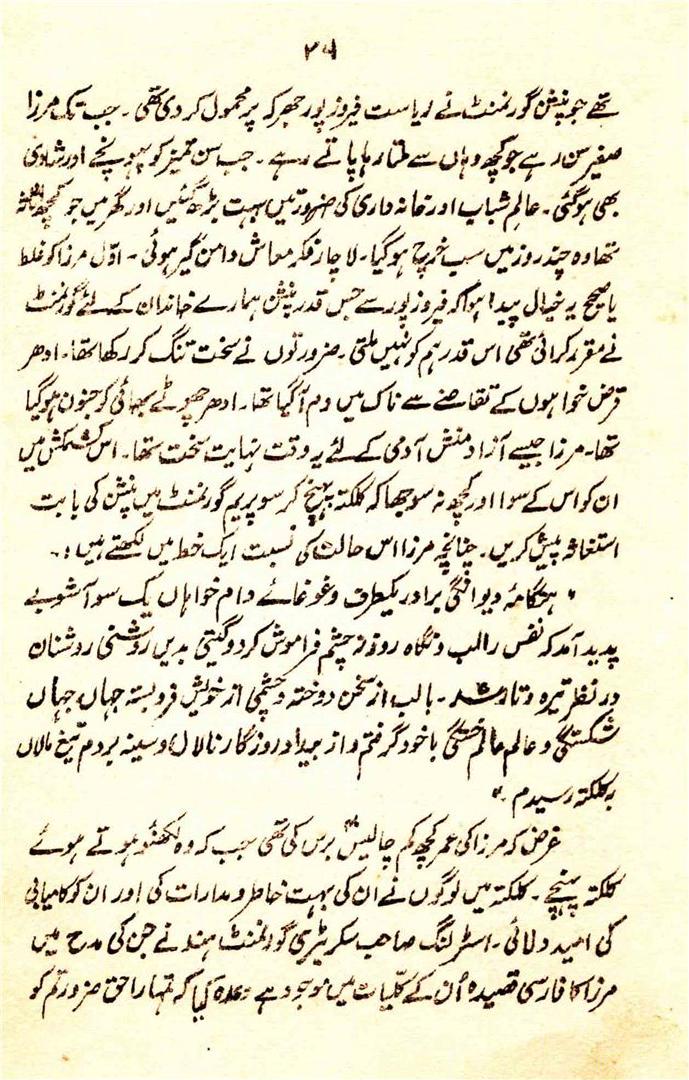 ۲۶
تھے جو پنشن گورنمنٹ نے ریاست فیروز پور جھرکہ پر محمول کر دی تھی ۔ جب تک مرزا
صغیر سن رہے جو کچھ وہاں سے ملتا رہا پاتے رہے ۔ جب سن تمیز کو پہونچے اور شادی
بھی ہو گئی ۔ عالم شباب اور خانہ داری کی ضرورتیں بہت بڑھ گئیں اور گھر میں جو کچھ
تھا وہ چند روز میں سب خرچ ہو گیا ۔ لاچار فکر معاش دامن گیر ہوئی ۔ اوّل مرزا کو غلط
یا صحیح یہ خیال پیدا ہوا کہ فیروز پور سے جس قدر پنشن ہمارے خاندان کے لئے گورنمنٹ
نے مقرر کرائی تھی اس قدر ہم کو نہیں ملتی ۔ ضرورتوں نے سخت تنگ کر رکھا تھا ۔ ادھر
قرض خواہوں کے تقاضے سے ناک میں دم آ گیا تھا ۔ ادھر چھوٹے بھائی کو جنون ہو گیا
تھا ۔ مرزا جیسے آزاد منش آدمی کے لئے یہ وقت نہایت سخت تھا ۔ اس کشمکش میں
ان کو اس کے سوا اور کچھ نہ سوجھا کہ کلکتہ پہنچ کر سوپریم گورنمنٹ میں پنشن کی بابت
استغاثہ پیش کریں ۔ چنانچہ مرزا اس حالت کی نسبت ایک خط میں لکھتے ہیں :۔
" ہنگامۂ دیوانگی برادر یکطرف و غوغائے وام خواہاں یک سو آشوبے
پدید آمد کہ نفس را لب و نگاہ روزنہ چشم فراموش کرد و گیتی بدیں روشنی روشنان
در نظر تیرہ و تار شد ۔ با لب از سخن دوختہ و چشمی از خویش فروبستہ جہاں جہاں
شکستگی و عالم عالم خستگی با خود گرفتم و از بیداد روزگار نالاں و سینہ بر دم تیغ مالاں
بہ کلکتہ رسیدم ۔ "
غرض کہ مرزا کی عمر کچھ کم چالیس برس کی تھی جب کہ وہ لکھنؤ ہوتے ہوئے
کلکتہ پہنچے ۔ کلکتہ میں لوگوں نے ان کی بہت خاطر و مدارات کی اور ان کو کامیابی
کی امید دلائی ۔ اسٹرلنگ صاحب سکریٹری گورنمنٹ ہند نے جن کی مدح میں
مرزا کا فارسی قصیدہ اُن کے کلّیات میں موجود ہے وعدہ کیا کہ تمہارا حق ضرور تم کو